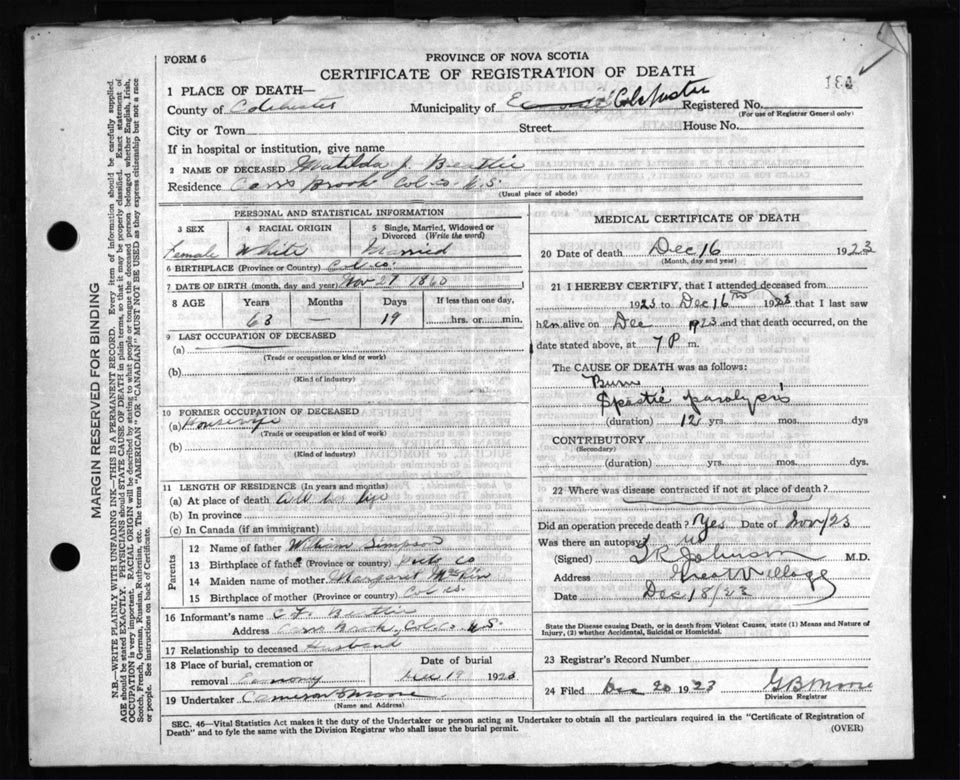 184
FORM 6
PROVINCE OF NOVA SCOTIA
CERTIFICATE OF REGISTRATION OF DEATH
1 PLACE OF DEATH—
County of Colchester Municipality of Colchester Registered No.
(For use of Registrar General only)
City or Town Street House No.
If in hospital or institution, give name
2 NAME OF DECEASED Matilda J Beattie
Residence Carrs Brook Col. co. N.S.
(Usual place of abode)
PERSONAL AND STATISTICAL INFORMATION
3 SEX 4 RACIAL ORIGIN 5 Single, Married, Widowed or Divorced (Write the word)
Female White Married
6 BIRTHPLACE (Province or Country) Col co.
7 DATE OF BIRTH (month, day and year) Nov 27 1860
8 AGE Years Months Days If less than one day,
63 — 19 hrs. or min.
9 LAST OCCUPATION OF DECEASED
(a)
(Trade or occupation or kind or work)
(b)
(Kind of industry)
10 FORMER OCCUPATION OF DECEASED
(a) Housewife
(Trade or occupation or kind of work)
(b)
(Kind of industry)
11 LENGTH OF RESIDENCE (In years and months)
(a) At place of death All her life
(b) In province
(c) In Canada (if an immigrant)
Parents
12 Name of father William Simpson
13 Birthplace of father (Province or country) Pictou Co
14 Maiden name of mother Margaret
15 Birthplace of mother (Province or country) Col co.
16 Informant's name C F Beattie
Address Carrs Brook, Col. co N.S.
17 Relationship to deceased Husband
18 Place of burial, cremation or Date of burial
removal Economy Dec 19 1923
19 Undertaker Cameron & Moore
(Name and Address)
MEDICAL CERTIFICATE OF DEATH
20 Date of death Dec 16 1923
(Month, day and year)
21 I HEREBY CERTIFY, that I attended deceased from
1923 to Dec 16th 1923 that I last saw
her alive on Dec 1923 and that death occurred, on the
date stated above, at 7 P m.
The CAUSE OF DEATH was as follows:
Burn
Spastic paralysis
(duration) 12 yrs. mos. dys.
CONTRIBUTORY
(Secondary)
(duration) yrs. mos. dys.
22 Where was disease contracted if not at place of death?
Did an operation precede death? Yes Date of Nov/23
Was there an autopsy? No
(Signed) T R Johnson M.D.
Address Great Village
Date Dec 18/23
State the Disease causing Death, or in death from Violent Causes, state (1) Means and Nature of
Injury, (2) whether Accidental, Suicidal or Homicidal.
23 Registrar's Record Number
24 Filed Dec 20 1923 G B Moore
Division Registrar
SEC. 46—Vital Statistics Act makes it the duty of the Undertaker or person acting as Undertaker to obtain all the particulars required in the "Certificate of Registration of
Death" and to fyle the same with the Division Registrar who shall issue the burial permit. (OVER)
MARGIN RESERVED FOR BINDING
N.B.—WRITE PLAINLY WITH UNFADING INK—THIS IS A PERMANENT RECORD. Every item of information should be carefully supplied.
AGE should be stated EXACTLY. PHYSICIANS should STATE CAUSE OF DEATH in plain terms, so that it may be properly classified. Exact statement of
OCCUPATION is very important. RACIAL ORIGIN will be described by stating to what people or tongue the deceased person belonged whether English, Irish,
Scotch, French, German, Russian, Ruthenian, etc. The terms "AMERICAN" or "CANADIAN" MUST NOT BE USED as they express citizenship but not a race
or people. See instructions on back of Certificate.